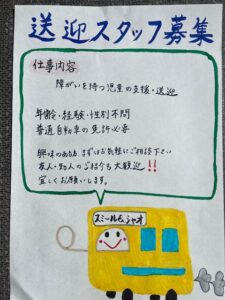 送迎スタッフ募集
仕事内容
障がいを持つ児童の支援・送迎
年齢・経験・性別不問
普通自動車の免許必要
興味のある方、まずはお気軽にご相談下さい
友人・知人のご紹介も大歓迎!!
宜しくお願いします。
スミールむシャオ